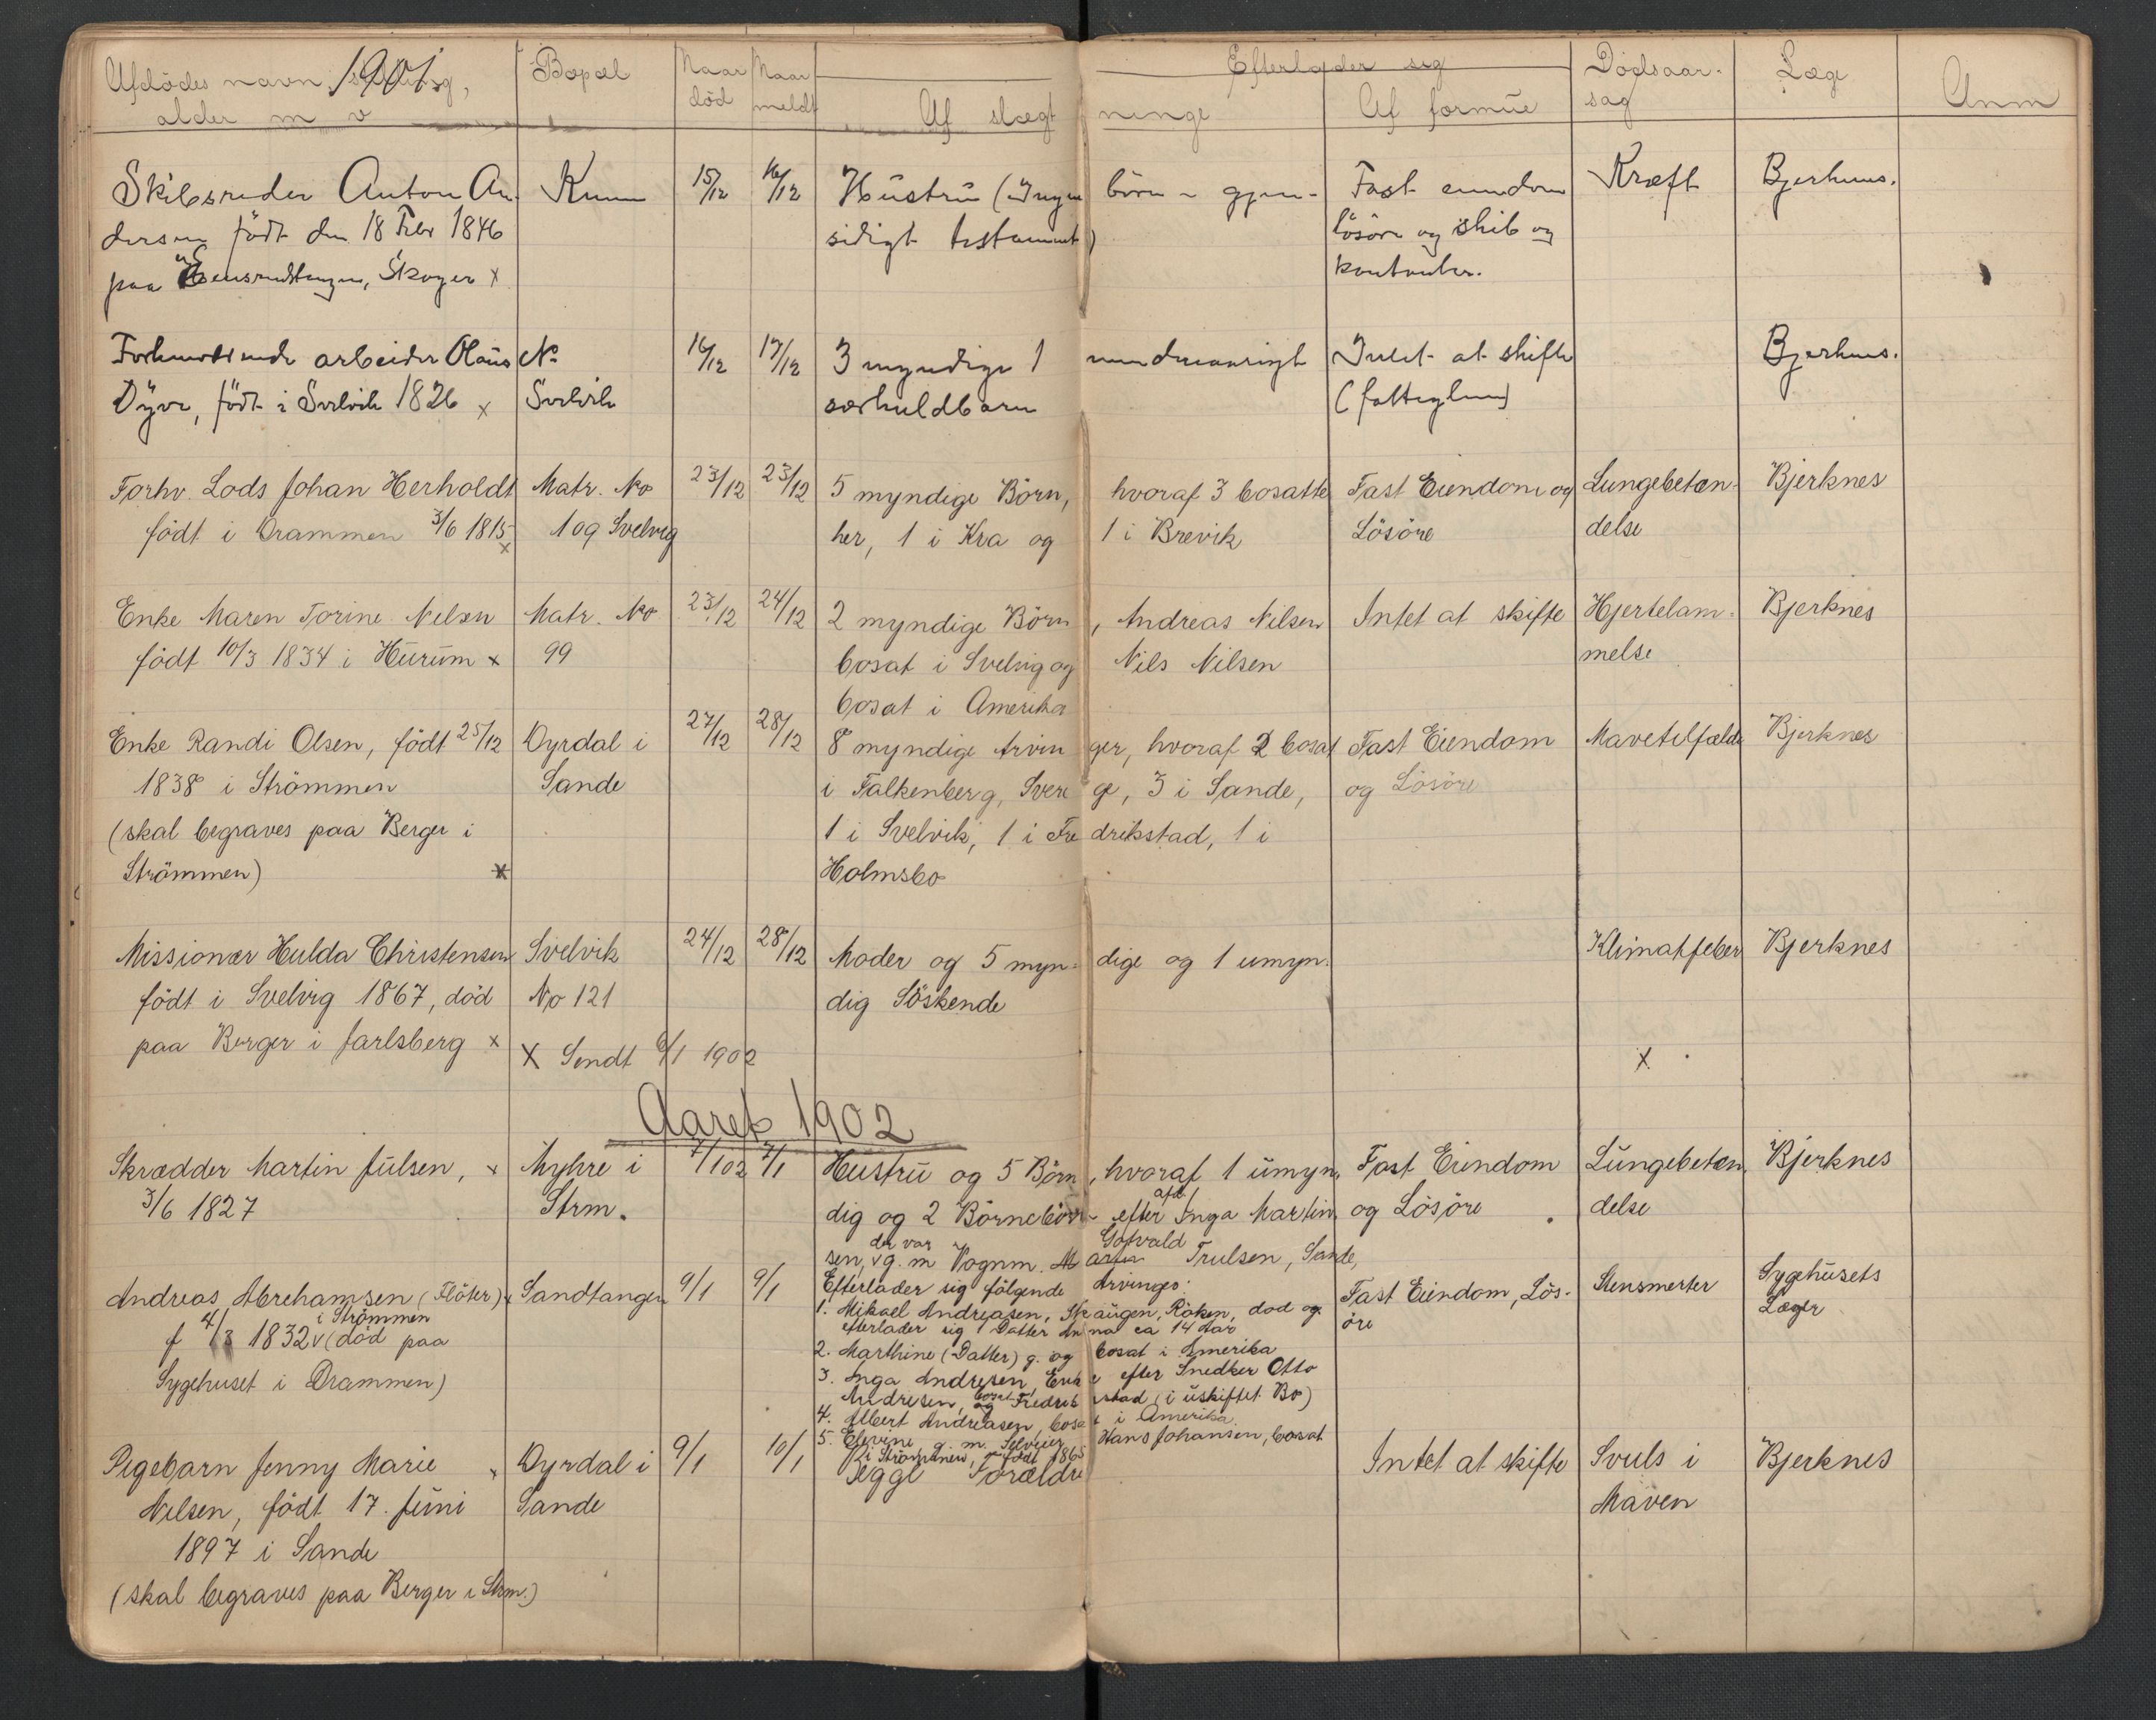 1901
Afdödes navn, stilling, Bopæl Naar Naar Efterlader sig Dödsaar- Læge Anm
alder m v död meldt Af slægt ninge Af formue sag
Skibsreder Anton An- 15/12 16/12 Hustru (Ingen börn - gjen- Fast eiendom Kræft Bjerknes.
dersen födt den 18 Febr 1846 sidigt testament) lösöre og skib og
paa Skoger x kontanter.
Forhenværende arbeider Olaus No 16/12 17/12 3 myndige 1 mindreaarigt Intet at skifte Bjerknes.
Dyve, födt i Svelvik 1826 x Svelvik særkuldbarn (fattiglem)
Forhv. Lods Johan Herholdt Matr. No 23/12 23/12 5 myndige Börn, hvoraf 3 bosatte Fast Eiendom og Lungebetæn- Bjerknes
födt i Drammen 3/6 1815 x 109 Svelvig her, 1 i Kra og 1 i Brevik Lösöre delse
Enke Maren Torine Nelsen Matr. No 23/12 24/12 2 myndige Börn, Andreas Nilsen Intet at skifte Hjertelam- Bjerknes
födt 10/3 1834 i Hurum x 99 bosat i Svelvig og Nils Nilsen melse
bosat i Amerika
Enke Randi Olsen, födt 25/12 Dyrdal i 27/12 28/12 8 myndige Arvinger, hvoraf 2 bosat Fast Eiendom Mavetilfælde Bjerknes
1838 i Strömmen Sande i Falkenberg, Sverige, 3 i Sande, og Lösöre
(skal begraves paa Berger i 1 i Svelvik, 1 i Fredrikstad, 1 i
Strömmen) x Holmsbo
Missionær Hulda Christensen Svelvik 24/12 28/12 Moder og 5 myn- dige og 1 umyn- Klimatfeber Bjerknes
födt i Svelvig 1867, död No 121 dig Söskende
paa Berger i Jarlsberg x X Sendt 6/1 1902 x
Aaret 1902
Skrædder Martin Julsen, x Myhre i 7/1 02 7/1 Hustru og 5 Börn, hvoraf 1 umyn- Fast Eiendom Lungebetæn- Bjerknes
3/6 1827 Strm. dig og 2 Börnebörn - efter afd. Inga Martin- og Lösöre delse
sen, der var g. m Vognm. Gotvald Trulsen, Sande,
Andreas Abrehamsen (Flöter) x Sandtangen 9/1 9/1 Efterlader sig fölgende Arvinge: Fast Eiendom, Lös- Stensmerter Sygehusets
f 4/3 1832 i Strömmen (död paa 1. Mikael Andreasen, Skaugen, Röken, död og öre Læger
efterlader sig 1 Datter Anna ca 14 Aar
Sygehuset i Drammen) 2. Marthine (Datter) g. og bosat i Amerika
3. Inga Andresen, Enke efter Snedker Otto
Andresen, bosat Fredrikstad (i uskiftet Bo)
4. Albert Andreasen, bosat i Amerika.
5. Elevine g. m. Selveier Hans Johansen, bosat
i Strömmen, födt 1865
Pigebarn Jenny Marie x Dyrdal i 9/1 10/1 Begge Forældre Intet at skifte Svuls i Bjerknes
Nilsen, födt 17. Juni Sande Maven
1897 i Sande
(skal begraves paa Berger i Strm.)